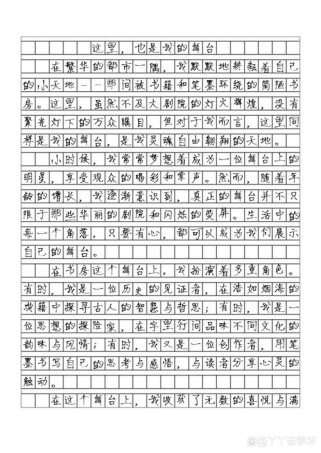 这里，也是我的舞台
在繁华的都市一隅，我默默地耕耘着自己
的小天地——那间被书籍和笔墨环绕的简陋书
房。这里，虽然不及大剧院的灯火辉煌，没有
聚光灯下的万众瞩目，但对于我而言，这里同
样是我的舞台，是我灵魂自由翱翔的天地。
小时候，我常常梦想着成为一位舞台上的
明星，享受观众的喝彩和掌声。然而，随着年
龄的增长，我逐渐意识到，真正的舞台并不只
限于那些华丽的剧院和闪烁的荧屏。生活中的
每一个角落，只要有心，都可以成为我们展示
自己的舞台。
在书房这个舞台上，我扮演着多重角色。
有时，我是一位历史的见证者，在浩如烟海的
典籍中探寻古人的智慧与哲思；有时，我是一
位思想的探险家，在字里行间品味不同文化的
韵味与风情；有时，我又是一位创作者，用笔
墨书写自己的思考与感悟，与读者分享心灵的
触动。
在这个舞台上，我收获了无数的喜悦与满
@丫丫去学习